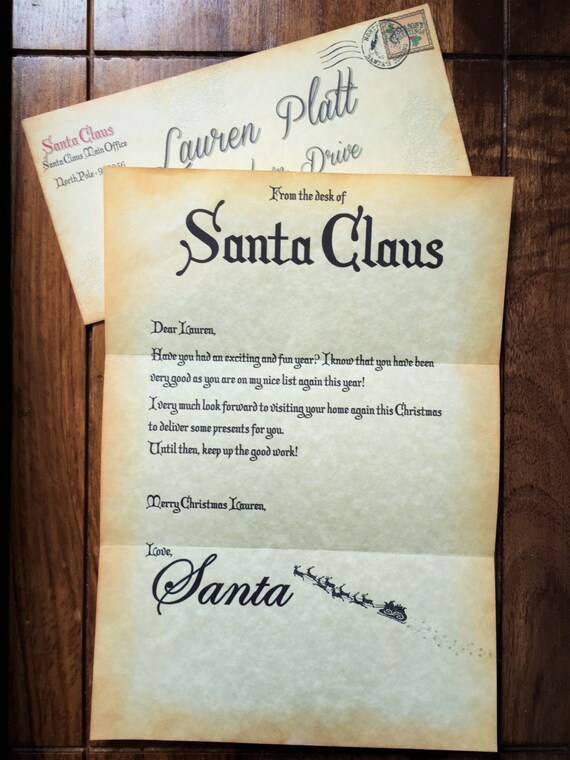 Santa Claus
Santa Claus Main Office
North Pole
Lauren Platt
Drive
From the desk of
Santa Claus
Dear Lauren,
Have you had an exciting and fun year? I know that you have been
very good as you are on my nice list again this year!
I very much look forward to visiting your home again this Christmas
to deliver some presents for you.
Until then, keep up the good work!
Merry Christmas Lauren,
Love,
Santa